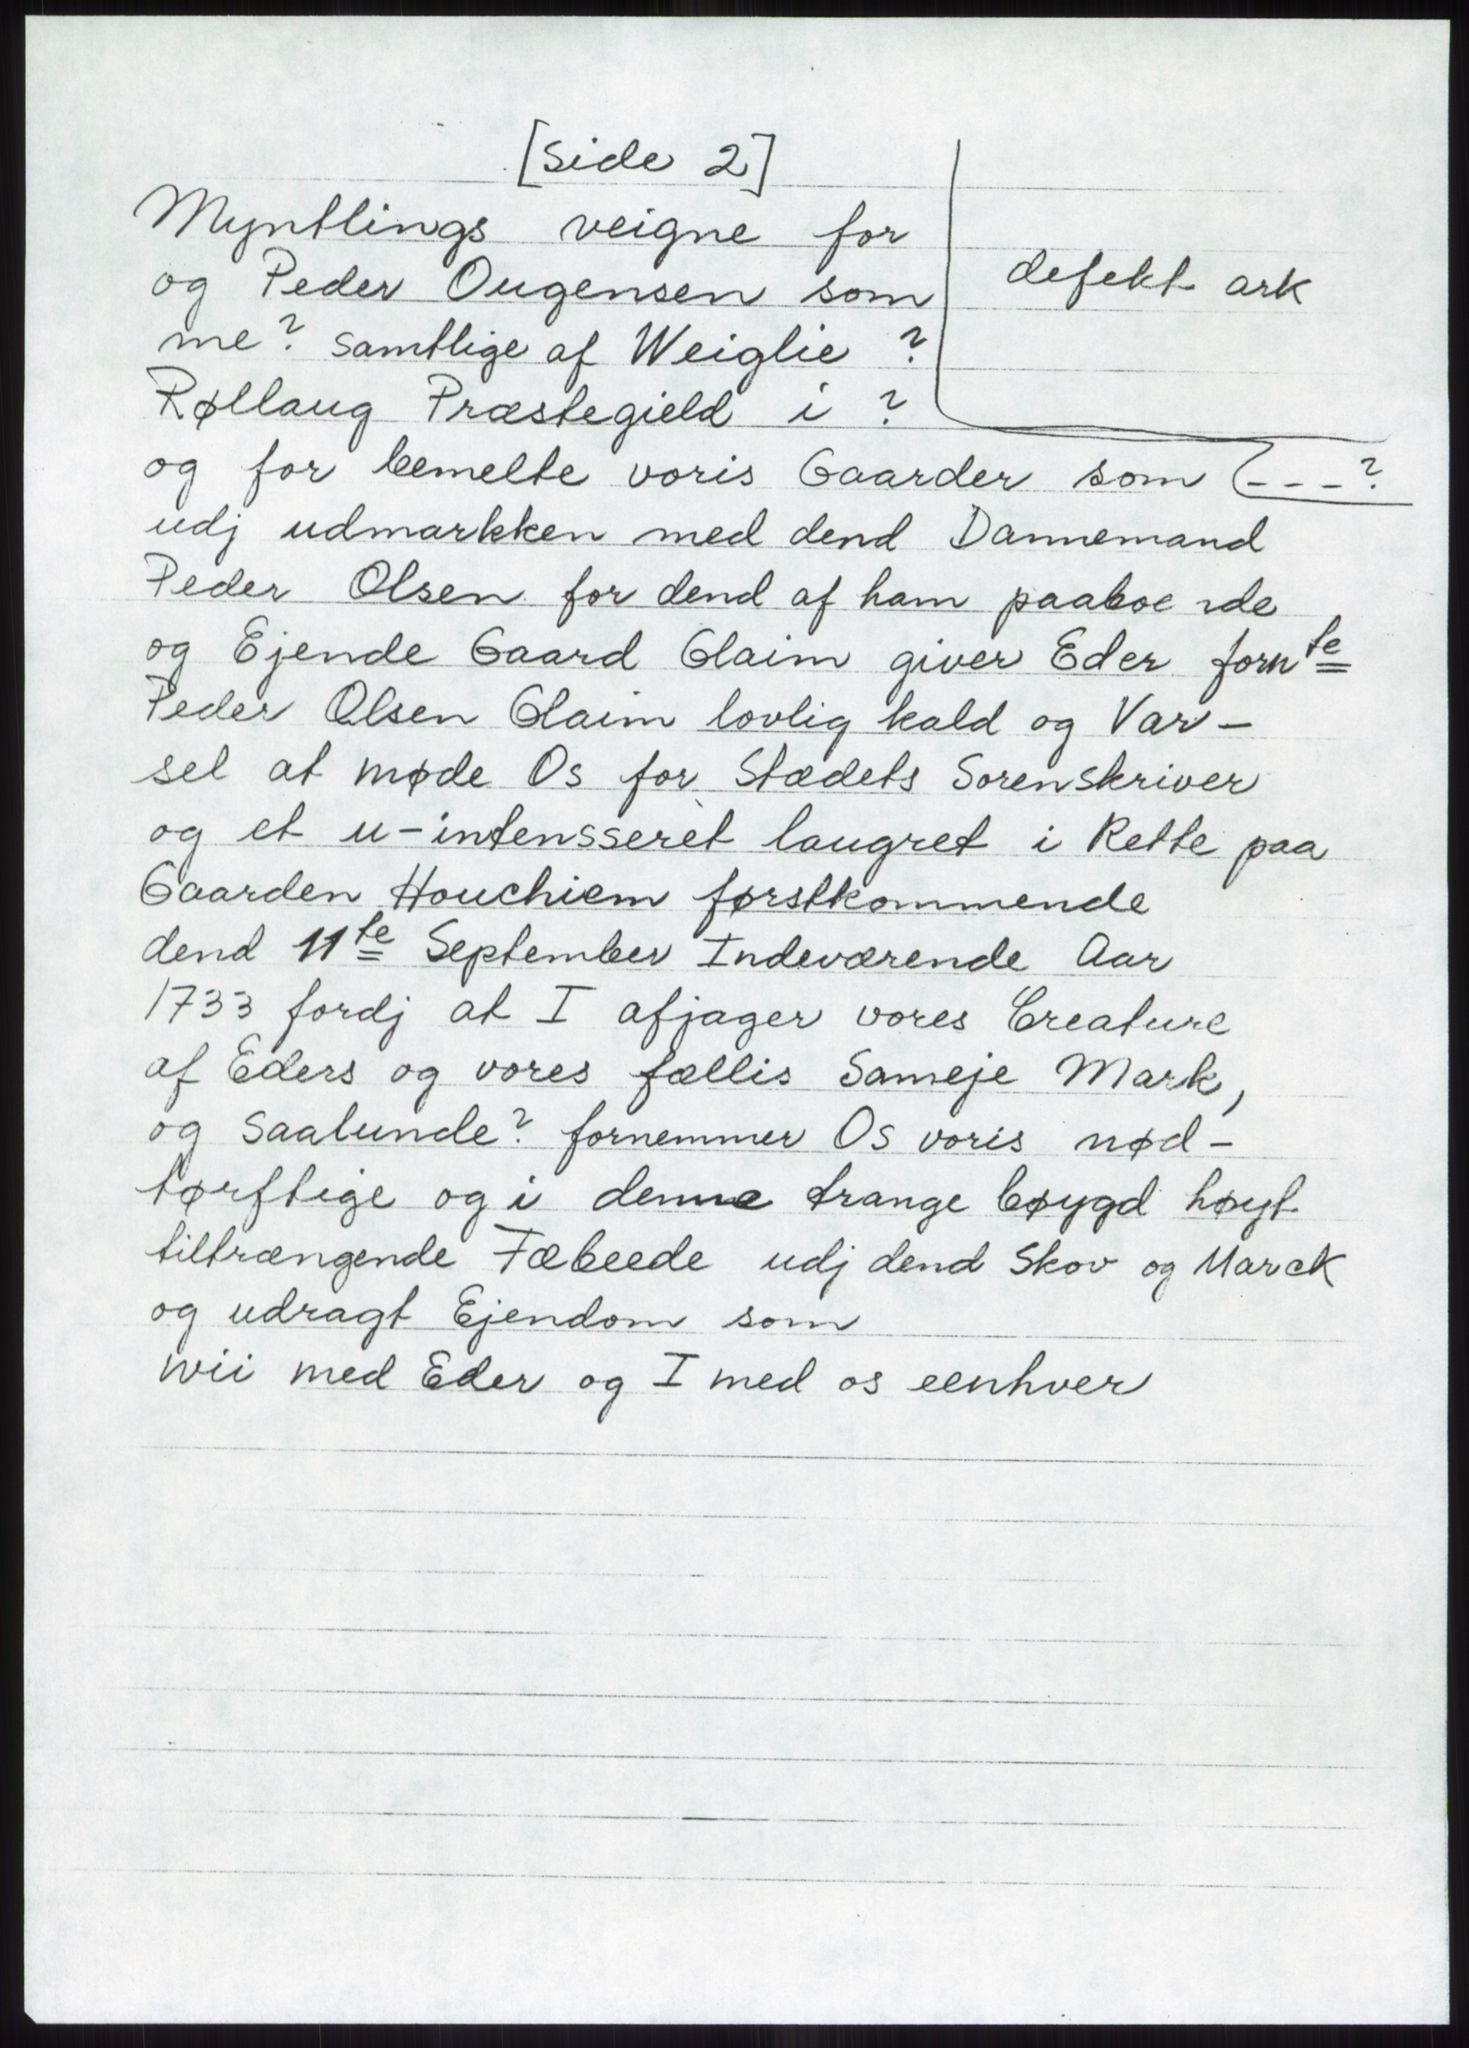 [side 2]
Myntlings veigne for
og Peder Ougensen som
defekt ark
me? samtlige af Weiglie ?
Røllaug Præstegield i ?
og for bemelte voris Gaarder som (---?
udj udmarkken med dend Dannemand
Peder Olsen for dend af ham paaboe nde
og Ejende Gaard Glaim giver Eder fornte
Peder Olsen Glaim lovlig kald og Var-
sel at møde Os for Stædets Sorenskriver
og et u-intensseret laugret i Rette paa
Gaarden Houchiem førstkommende
dend 11te September Indeværende Aar
1733 fordj at I afjager vores Creature
af Eders og vores fællis Sameje Mark,
og Saalunde? fornemmer Os voris nød-
tørftige og i denne trange bøygd høyt
tiltrængende Fæbeede udj dend Skov og Marck
og udragt Ejendom som
wii med Eder og I med os eenhver